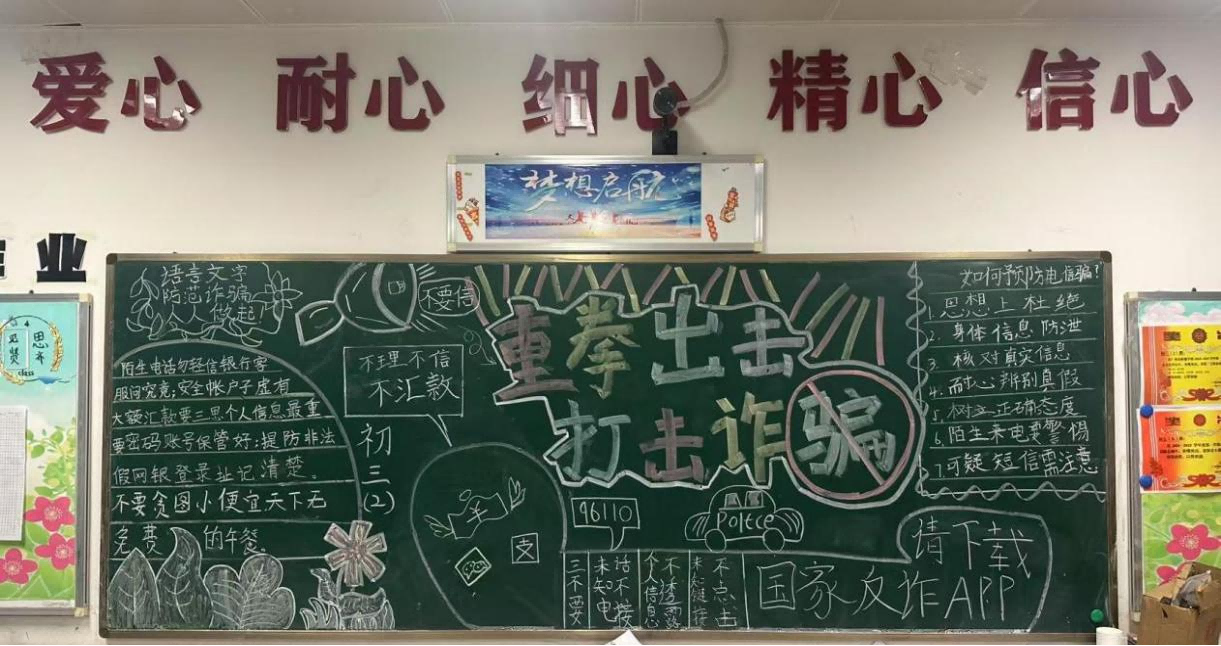 爱心 耐心 细心 精心 信心
梦想启航
业
语言文字
防范诈骗
人人做起
不要信
重拳出击
打击诈骗
不理不信
不汇款
初三(2)
陌生电话勿轻信银行客
服问究竟;安全帐户子虚有
大额汇款要三思个人信息最重
要密码账号保管好:提防非法
假网银登录址记清楚。
不要贪图小便宜天下无
免费 的午餐。
如何予防电信骗?
1.思想上杜绝
2.身体信息防泄
3.核对真实信息
4.耐心辨别真假
5.树立正确态度
6.陌生来电要警惕
7.可疑短信需注意
96110
Police
支
三不要
未知电话不接
个人信息不透露
未知链接不点击
请下载
国家反诈APP
class